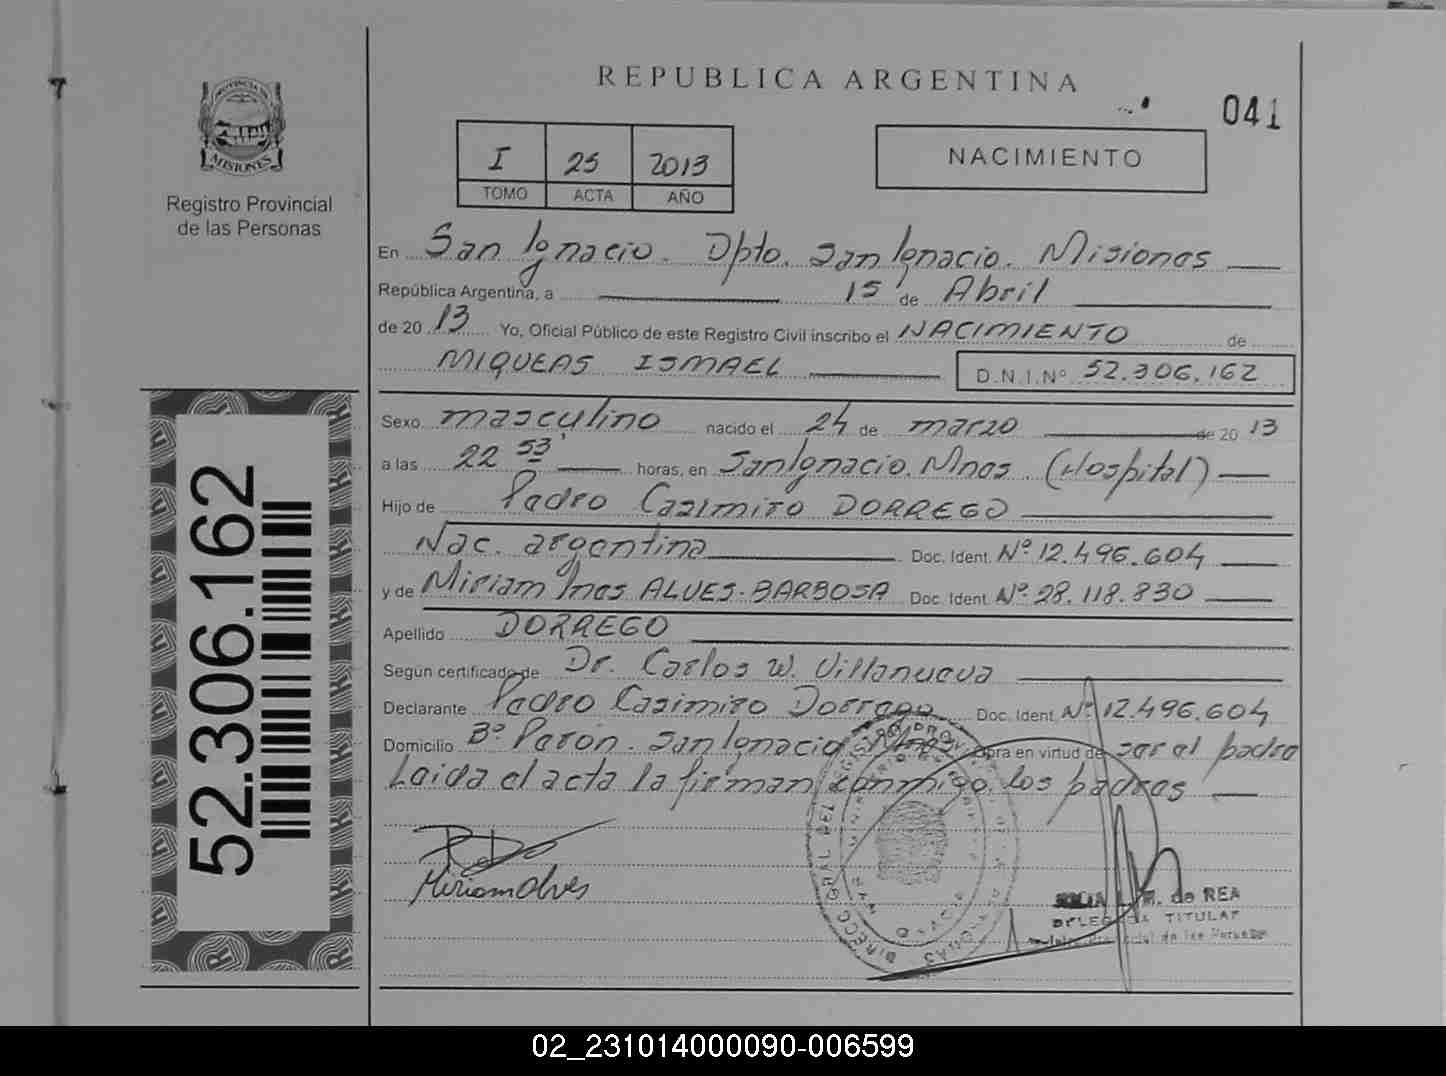 REPUBLICA ARGENTINA
041
PROVINCIA DE
MISIONES
Registro Provincial
de las Personas
I 25 2013
TOMO ACTA AÑO
NACIMIENTO
En San Ignacio. Dpto. San Ignacio. Misiones
República Argentina, a 15 de Abril
de 20 13 Yo, Oficial Público de este Registro Civil inscribo el NACIMIENTO de
MIQUEAS ISMAEL D.N.I.Nº 52.306.162
Sexo masculino nacido el 24 de marzo de 20 13
a las 22 53' horas, en San Ignacio. Mnes. (Hospital)
Hijo de Pedro Casimiro DORREGO
Nac. argentina Doc. Ident. Nº 12.496.604
y de Miriam Ines ALVES-BARBOSA Doc. Ident. Nº 28.118.830
Apellido DORREGO
Según certificado de Dr. Carlos W. Villanueva
Declarante Pedro Casimiro Dorrego Doc. Ident. Nº 12.496.604
Domicilio Bº Perón. San Ignacio Mnes Obra en virtud de ser el padre
Leida el acta la firman conmigo los padres
Miriam Alves
de REA
TITULAR
52.306.162
02_231014000090-006599